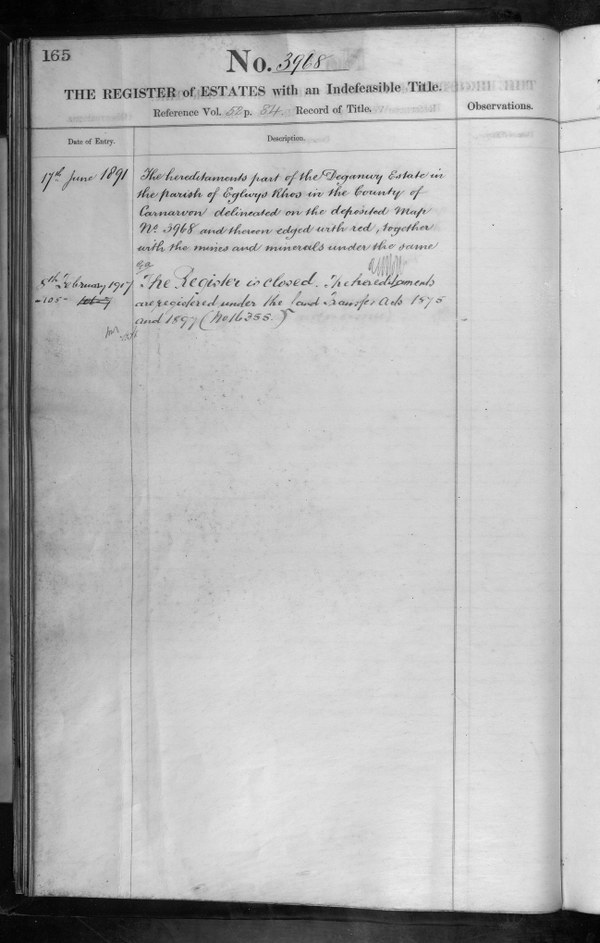 165
No. 3968
THE REGISTER of ESTATES with an Indefeasible Title.
Reference Vol. 52 p. 84. Record of Title.
Observations.
Date of Entry.
Description.
17th June 1891
The hereditaments part of the Deganwy Estate in
the parish of Eglwys Rhos in the County of
Carnarvon delineated on the deposited Map
No. 3968 and thereon edged with red, together
with the mines and minerals under the same
8th February 1917
The Register is closed. The hereditaments
are registered under the Land Transfer Acts 1875
and 1897 (No 16355.)